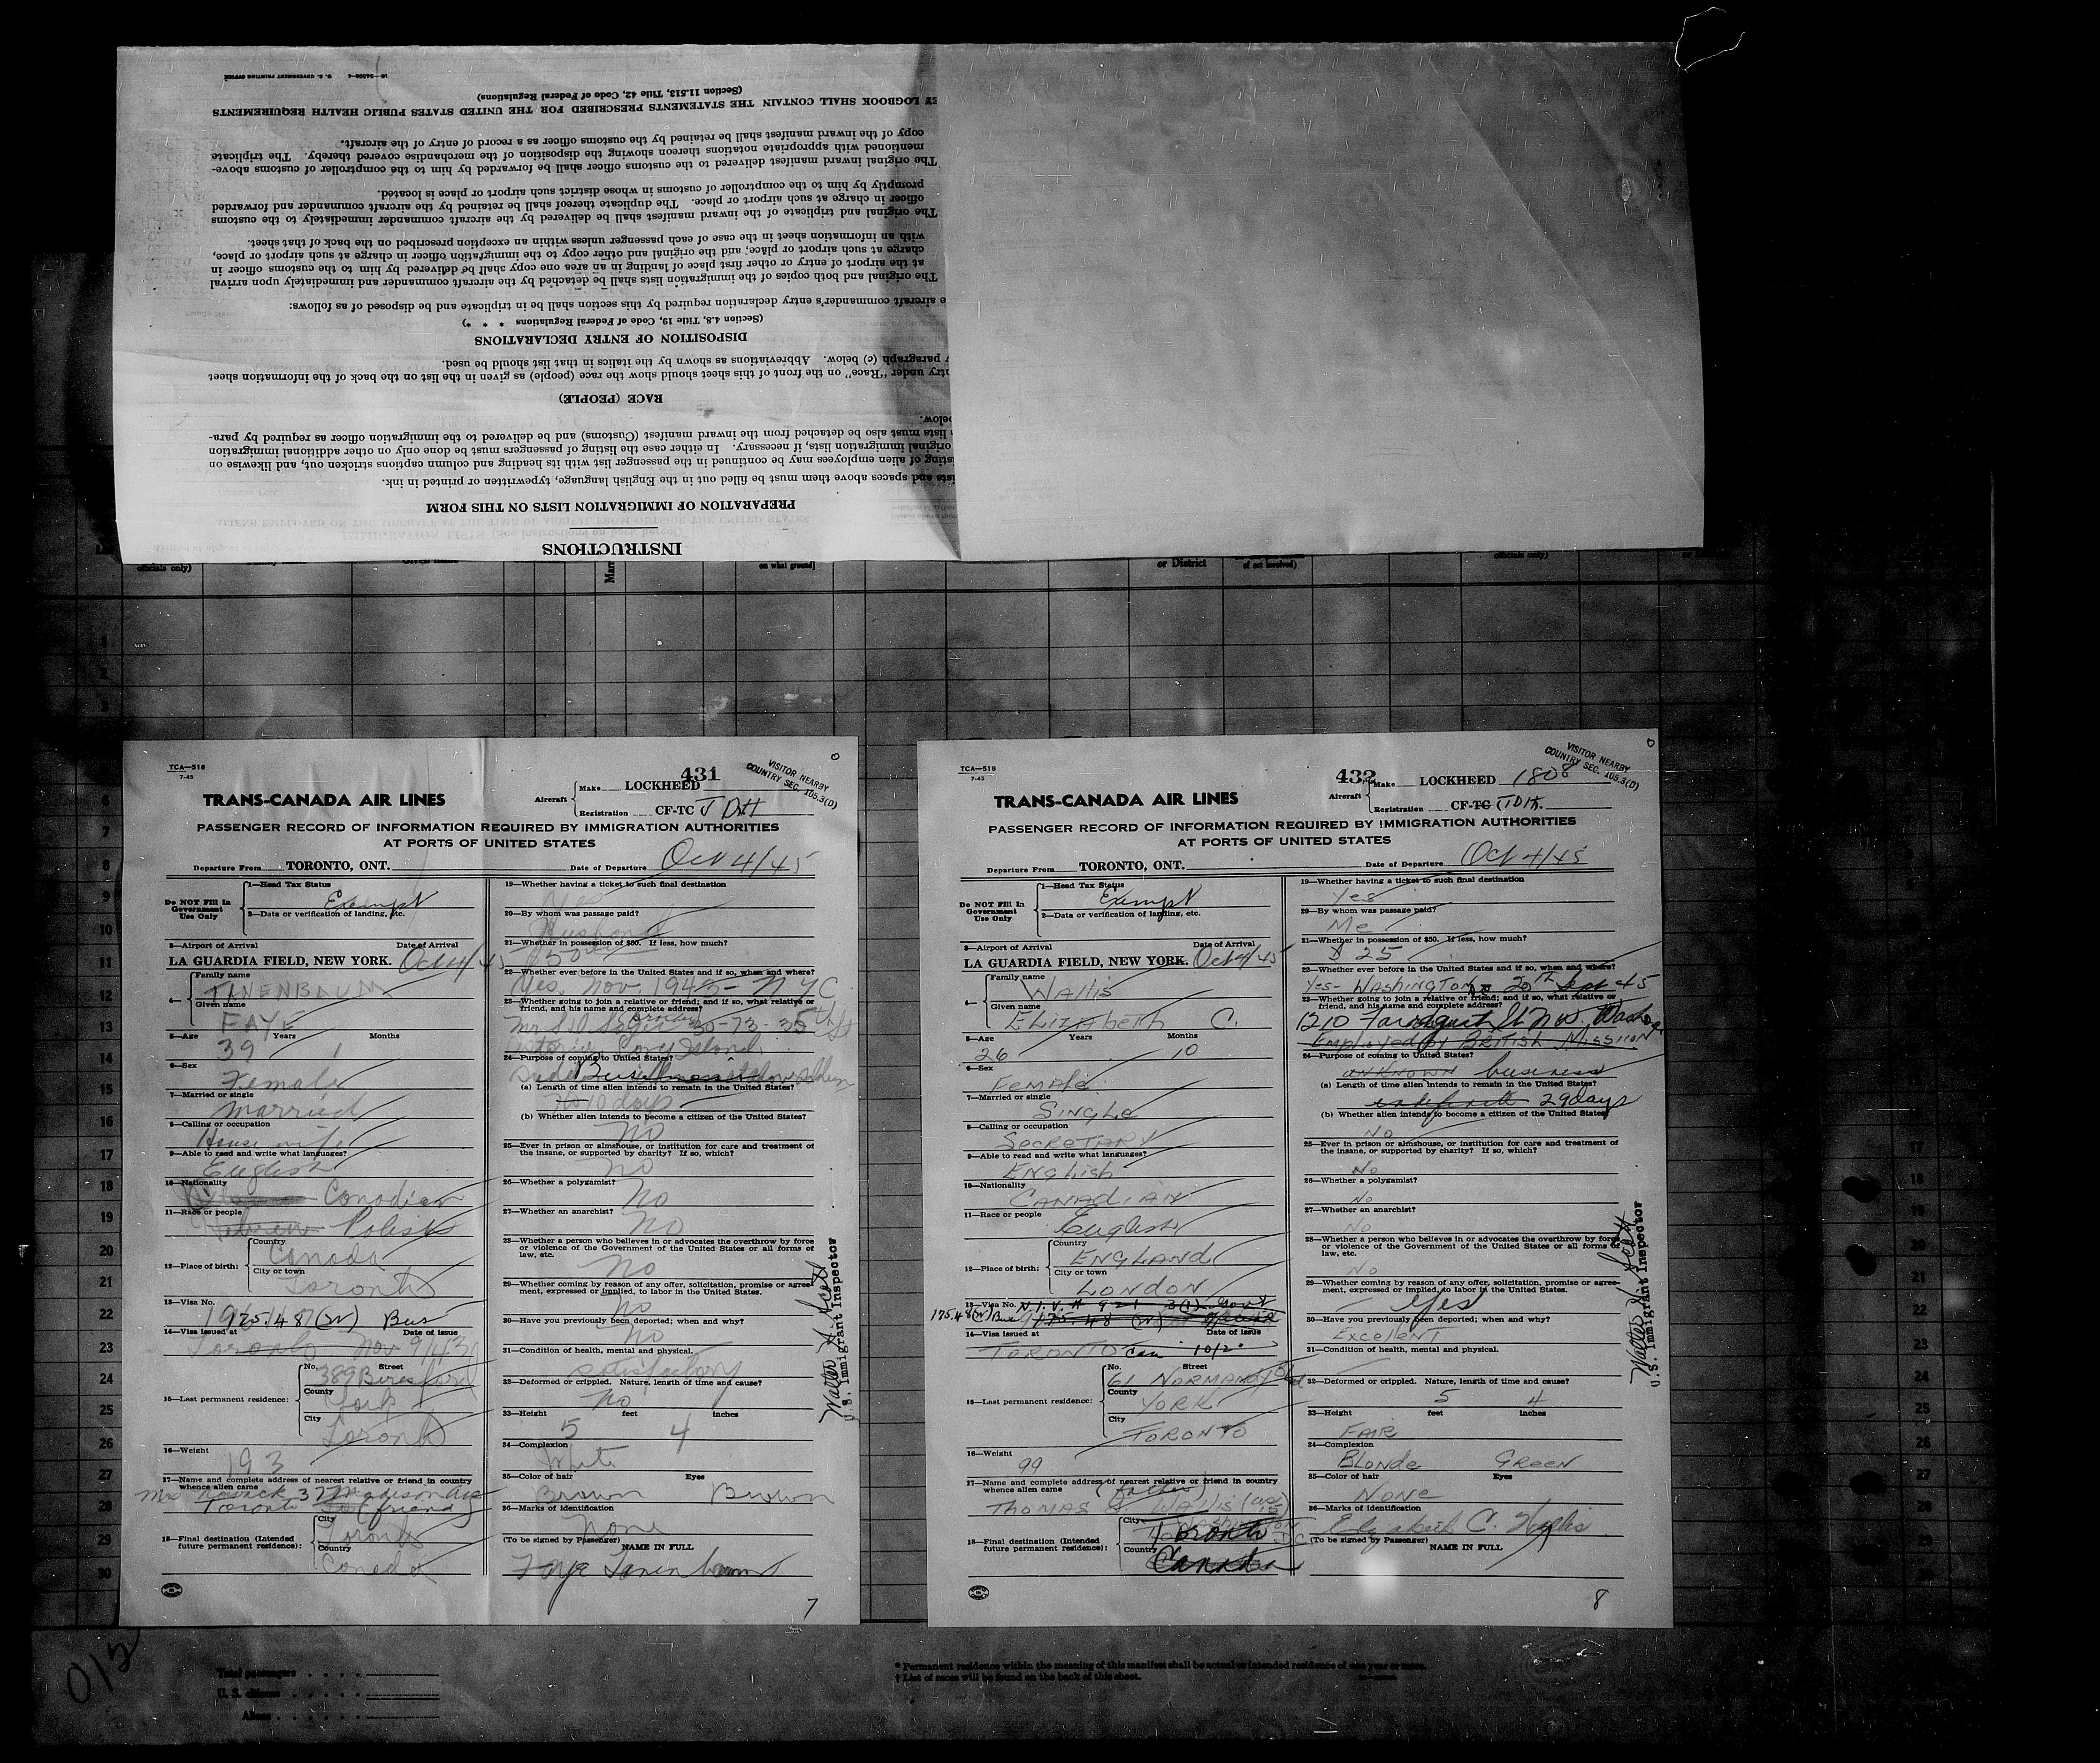 INSTRUCTIONS
PREPARATION OF IMMIGRATION LISTS ON THIS FORM
and spaces above them must be filled out in the English language, typewritten or printed in ink.
of alien employees may be continued in the passenger list with its heading and column captions stricken out, and likewise on
original immigration lists, if necessary. In either case the listing of passengers must be done only on other additional immigration
lists must also be detached from the inward manifest (Customs) and be delivered to the immigration officer as required by para-
below.
RACE (PEOPLE)
under "Race" on the front of this sheet should show the race (people) as given in the list on the back of the information sheet
paragraph (c) below. Abbreviations as shown by the italics in that list should be used.
DISPOSITION OF ENTRY DECLARATIONS
(Section 4.8, Title 19, Code of Federal Regulations * * *)
aircraft commander's entry declaration required by this section shall be in triplicate and be disposed of as follows:
The original and both copies of the immigration lists shall be detached by the aircraft commander and immediately upon arrival
at the airport of entry or other first place of landing in an area one copy shall be delivered by him to the customs officer in
charge at such airport or place, and the original and other copy to the immigration officer in charge at such airport or place,
with an information sheet in the case of each passenger unless within an exception prescribed on the back of that sheet.
The original and triplicate of the inward manifest shall be delivered by the aircraft commander immediately to the customs
officer in charge at such airport or place. The duplicate thereof shall be retained by the aircraft commander and forwarded
promptly by him to the comptroller of customs in whose district such airport or place is located.
The original inward manifest delivered to the customs officer shall be forwarded by him to the comptroller of customs above-
mentioned with appropriate notations thereon showing the disposition of the merchandise covered thereby. The triplicate
copy of the inward manifest shall be retained by the customs officer as a record of entry of the aircraft.
LOGBOOK SHALL CONTAIN THE STATEMENTS PRESCRIBED FOR THE UNITED STATES PUBLIC HEALTH REQUIREMENTS
(Section 11.513, Title 42, Code of Federal Regulations)
U. S. GOVERNMENT PRINTING OFFICE
officials only)
on what ground]
or District
of act involved)
officials only)
TCA—518
7-45
431
VISITOR NEARBY
COUNTRY SEC. 105.3(D)
TRANS-CANADA AIR LINES
Aircraft
Make LOCKHEED
Registration CF-TC
PASSENGER RECORD OF INFORMATION REQUIRED BY IMMIGRATION AUTHORITIES
AT PORTS OF UNITED STATES
Departure From TORONTO, ONT.
Date of Departure Oct 4/45
Do NOT Fill In Government Use Only
1—Head Tax Status
Exempt
2—Data or verification of landing, etc.
3—Airport of Arrival Date of Arrival
LA GUARDIA FIELD, NEW YORK. Oct 4/45
4—
Family name
TANENBAUM
Given name
FAYE
5—Age Years Months
39 1
6—Sex
Female
7—Married or single
Married
8—Calling or occupation
House wife
9—Able to read and write what languages?
English
10—Nationality
Canadian
11—Race or people
Hebrew Polish
12—Place of birth:
Country
Canada
City or town
Toronto
13—Visa No.
175.48 (W) Bus
14—Visa issued at Date of issue
Toronto Nov 9/43
15—Last permanent residence:
No. Street
389 Beresford
County
York
City
Toronto
16—Weight
193
17—Name and complete address of nearest relative or friend in country
whence alien came
37 Madison Ave
Toronto (friend)
18—Final destination (Intended
future permanent residence):
City
Toronto
Country
Canada
19—Whether having a ticket to such final destination
Yes
20—By whom was passage paid?
Husband
21—Whether in possession of $50. If less, how much?
22—Whether ever before in the United States and if so, when and where?
Yes. Nov. 1943 - NYC
23—Whether going to join a relative or friend; and if so, what relative or
friend, and his name and complete address?
30-73-35th St
Long Island
24—Purpose of coming to United States?
(a) Length of time alien intends to remain in the United States?
10 days
(b) Whether alien intends to become a citizen of the United States?
No
25—Ever in prison or almshouse, or institution for care and treatment of
the insane, or supported by charity? If so, which?
No
26—Whether a polygamist?
No
27—Whether an anarchist?
No
28—Whether a person who believes in or advocates the overthrow by force
or violence of the Government of the United States or all forms of
law, etc.
No
29—Whether coming by reason of any offer, solicitation, promise or agree-
ment, expressed or implied, to labor in the United States?
No
30—Have you previously been deported; when and why?
No
31—Condition of health, mental and physical.
satisfactory
32—Deformed or crippled. Nature, length of time and cause?
No
33—Height feet inches
5 4
34—Complexion
White
35—Color of hair Eyes
Brown Brown
36—Marks of identification
None
(To be signed by Passenger) NAME IN FULL
Faye Tanenbaum
Walter A. Scott
U.S. Immigrant Inspector
7
TCA—518
7-45
432
VISITOR NEARBY
COUNTRY SEC. 105.3(D)
TRANS-CANADA AIR LINES
Aircraft
Make LOCKHEED 1808
Registration CF-TC
PASSENGER RECORD OF INFORMATION REQUIRED BY IMMIGRATION AUTHORITIES
AT PORTS OF UNITED STATES
Departure From TORONTO, ONT.
Date of Departure Oct 4/45
Do NOT Fill In Government Use Only
1—Head Tax Status
Exempt
2—Data or verification of landing, etc.
3—Airport of Arrival Date of Arrival
LA GUARDIA FIELD, NEW YORK. Oct 4/45
4—
Family name
WALLIS
Given name
ELIZABETH C.
5—Age Years Months
26 10
6—Sex
FEMALE
7—Married or single
SINGLE
8—Calling or occupation
SECRETARY
9—Able to read and write what languages?
ENGLISH
10—Nationality
CANADIAN
11—Race or people
English
12—Place of birth:
Country
ENGLAND
City or town
LONDON
13—Visa No. N.I.V. # 921 3(1) Gov't
175.48 (W) Bus 175.48 (W)
14—Visa issued at Date of issue
TORONTO Can
15—Last permanent residence:
No. Street
61 NORMANDY Blvd
County
YORK
City
TORONTO
16—Weight
99
17—Name and complete address of nearest relative or friend in country
whence alien came (father)
THOMAS WALLIS
18—Final destination (Intended
future permanent residence):
City
Toronto
Country
Canada
19—Whether having a ticket to such final destination
Yes
20—By whom was passage paid?
Me
21—Whether in possession of $50. If less, how much?
$25
22—Whether ever before in the United States and if so, when and where?
Yes - WASHINGTON 20th Sept 45
23—Whether going to join a relative or friend; and if so, what relative or
friend, and his name and complete address?
1210 Farragut St NW Wash
EMPLOYED BY BRITISH MISSION
24—Purpose of coming to United States?
UNKNOWN business
(a) Length of time alien intends to remain in the United States?
indefinite 29 days
(b) Whether alien intends to become a citizen of the United States?
No
25—Ever in prison or almshouse, or institution for care and treatment of
the insane, or supported by charity? If so, which?
No
26—Whether a polygamist?
No
27—Whether an anarchist?
No
28—Whether a person who believes in or advocates the overthrow by force
or violence of the Government of the United States or all forms of
law, etc.
No
29—Whether coming by reason of any offer, solicitation, promise or agree-
ment, expressed or implied, to labor in the United States?
Yes
30—Have you previously been deported; when and why?
EXCELLENT
31—Condition of health, mental and physical.
32—Deformed or crippled. Nature, length of time and cause?
5 4
33—Height feet inches
FAIR
34—Complexion
BLONDE GREEN
35—Color of hair Eyes
NONE
36—Marks of identification
Elizabeth C. Wallis
(To be signed by Passenger) NAME IN FULL
Walter A. Scott
U.S. Immigrant Inspector
8
012
Total passengers
U. S. citizens
Aliens
* Permanent residence within the meaning of this manifest shall be actual or intended residence of one year or more.
† List of races will be found on the back of this sheet.